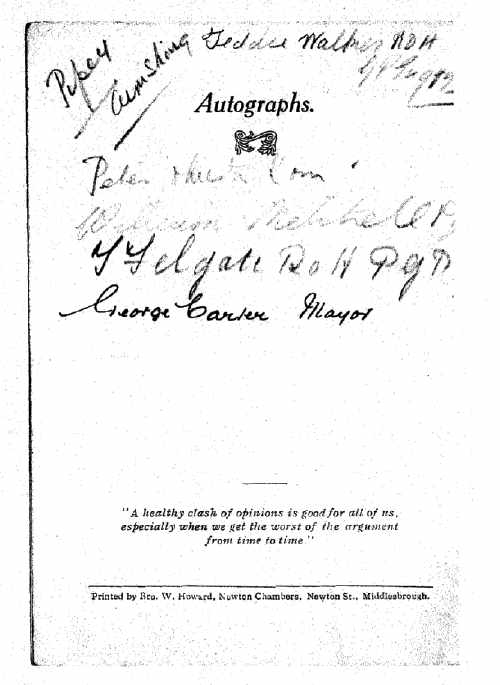 Piper Armstrong Teddie Walker RDH
Autographs.
Peter
William Mitchell
T Felgate RoH PGP
George Carter Mayor
"A healthy clash of opinions is good for all of us,
especially when we get the worst of the argument
from time to time."
Printed by Bro. W. Howard, Newton Chambers, Newton St., Middlesbrough.